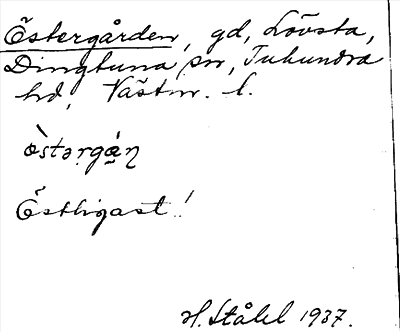 Östergården, gd, Lövsta,
Dingtuna sn, Tuhundra
hd, Västm. l.
ö̀stərgɑ́ṇ
Östligast!
H. Ståhl 1937.